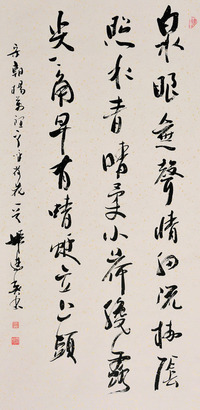 泉眼無聲惜細流樹陰
照水愛晴柔小荷纔露
尖尖角早有蜻蜓立上頭
宋朝楊萬里荷花一首